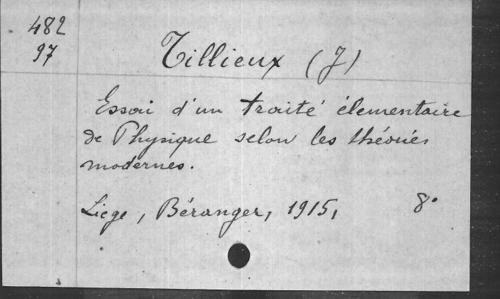 482
97
Tillieux (J)
Essai d'un traité élementaire
de Physique selon les théories
modernes.
Liege, Béranger, 1915, 8°